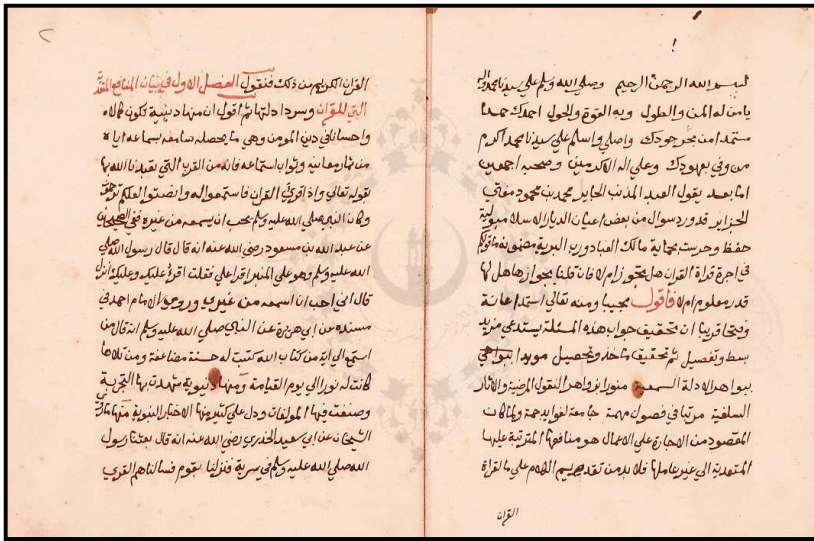 بسم الله الرحمن الرحيم وصلي الله وسلم علي سيدنا محمد واله
يا من له المن والطول وبه القوة والحول احمدك حمدا
مستمدا من بحر جودك واصلي واسلم علي سيدنا محمد اكرم
من وفي بعهودك وعلي اله الاكرمين وصحبه اجمعين
اما بعد يقول العبد المذنب الحاير محمد بن محمود مفتي
الجزاير قد ورد سوال من بعض اعيان الديار الاسلامبولية
حفظ وحرست بحماية مالك العباد ورب البرية مضمونه ما قولكم
في اجرة قراة القران هل يجوز ام لا فان قلنا بجوازها هل لها
قدر معلوم ام لا فأقول مجيبا ومنه تعالي استمد اعانة
وفتحا قريبا ان تحقيق جواب هذه المسئلة يستدعي مزيد
بسط وتفصيل ثم تحقيق ماخذ وتحصيل مويدا
ببواهر الادلة السمعية منورا بزواهر النقول المرضية والاثار
السلفية مرتبا في فصول مهمة جامعة لفوايد جمة ولما كان
المقصود من الاجارة علي الاعمال هو منافعها المترتبة عليها
المتعدية الي غير عاملها فلا بد من تقديم الكلام علي ما لقراة
القران
٢
القران الكريم من ذلك فنقول الفصل الاول في بيان المنافع المتعدية
التي للقران وسرد ادلتها ثم اقول ان منها دينية تكون كمالا
واحسانا في دين المومن وهي ما يحصله سامعه بسماعه اياه
من ثمار معانيه وثواب استماعه فانه من القرب التي تعبدنا الله بها
بقوله تعالي واذا قرئ القران فاستمعوا له وانصتوا لعلكم ترحمون
وكان النبي صلي الله عليه وسلم يحب ان يسمعه من غيره ففي الصحيحين
عن عبد الله بن مسعود رضي الله عنه انه قال قال رسول الله صلي
الله عليه وسلم وهو علي المنبر اقرا علي فقلت اقرئ عليك وعليك انزل
قال اني احب ان اسمعه من غيري وروي الامام احمد في
مسنده عن ابي هريرة عن النبي صلي الله عليه وسلم انه قال من
استمع الي اية من كتاب الله كتبت له حسنة مضاعفة ومن تلاها
كانت له نورا الي يوم القيامة ومنها دنيوية شهدت بها التجربة
وصنفت فيها المولفات ودل علي كثير منها الاخبار النبوية منها ما روي
الشيخان عن ابي سعيد الخدري رضي الله عنه انه قال بعثنا رسول
الله صلي الله عليه وسلم في سرية فنزلنا بقوم فسالناهم القري